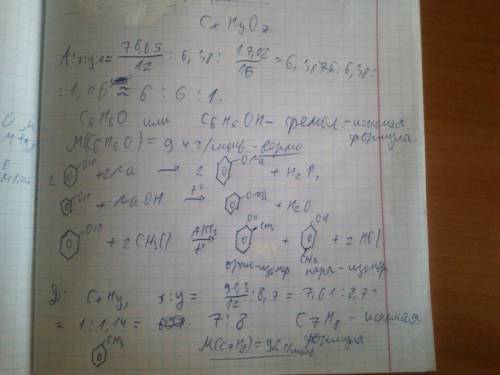 CxHyOz
A: x:y:z = 76,65/12 : 6,38 : 17,02/16 = 6,3876 : 6,38 :
: 1,06 ≈ 6 : 6 : 1.
C6H6O или C6H5OH - фенол. - искомая формула.
M(C6H6O) = 94 г/моль - верно
2 OH + 2Na → 2 ONa + H2↑,
OH + NaOH t° → ONa + H2O
OH + 2 CH3Cl AlCl3 t° → OH CH3 + OH CH3 + 2 HCl
орто-изомер пара-изомер
Д: CxHy, x:y = 91,3/12 : 8,7 = 7,61 : 8,7 =
= 1 : 1,14 = 7 : 8. C7H8 - искомая формула
CH3 M(C7H8) = 92 г/моль